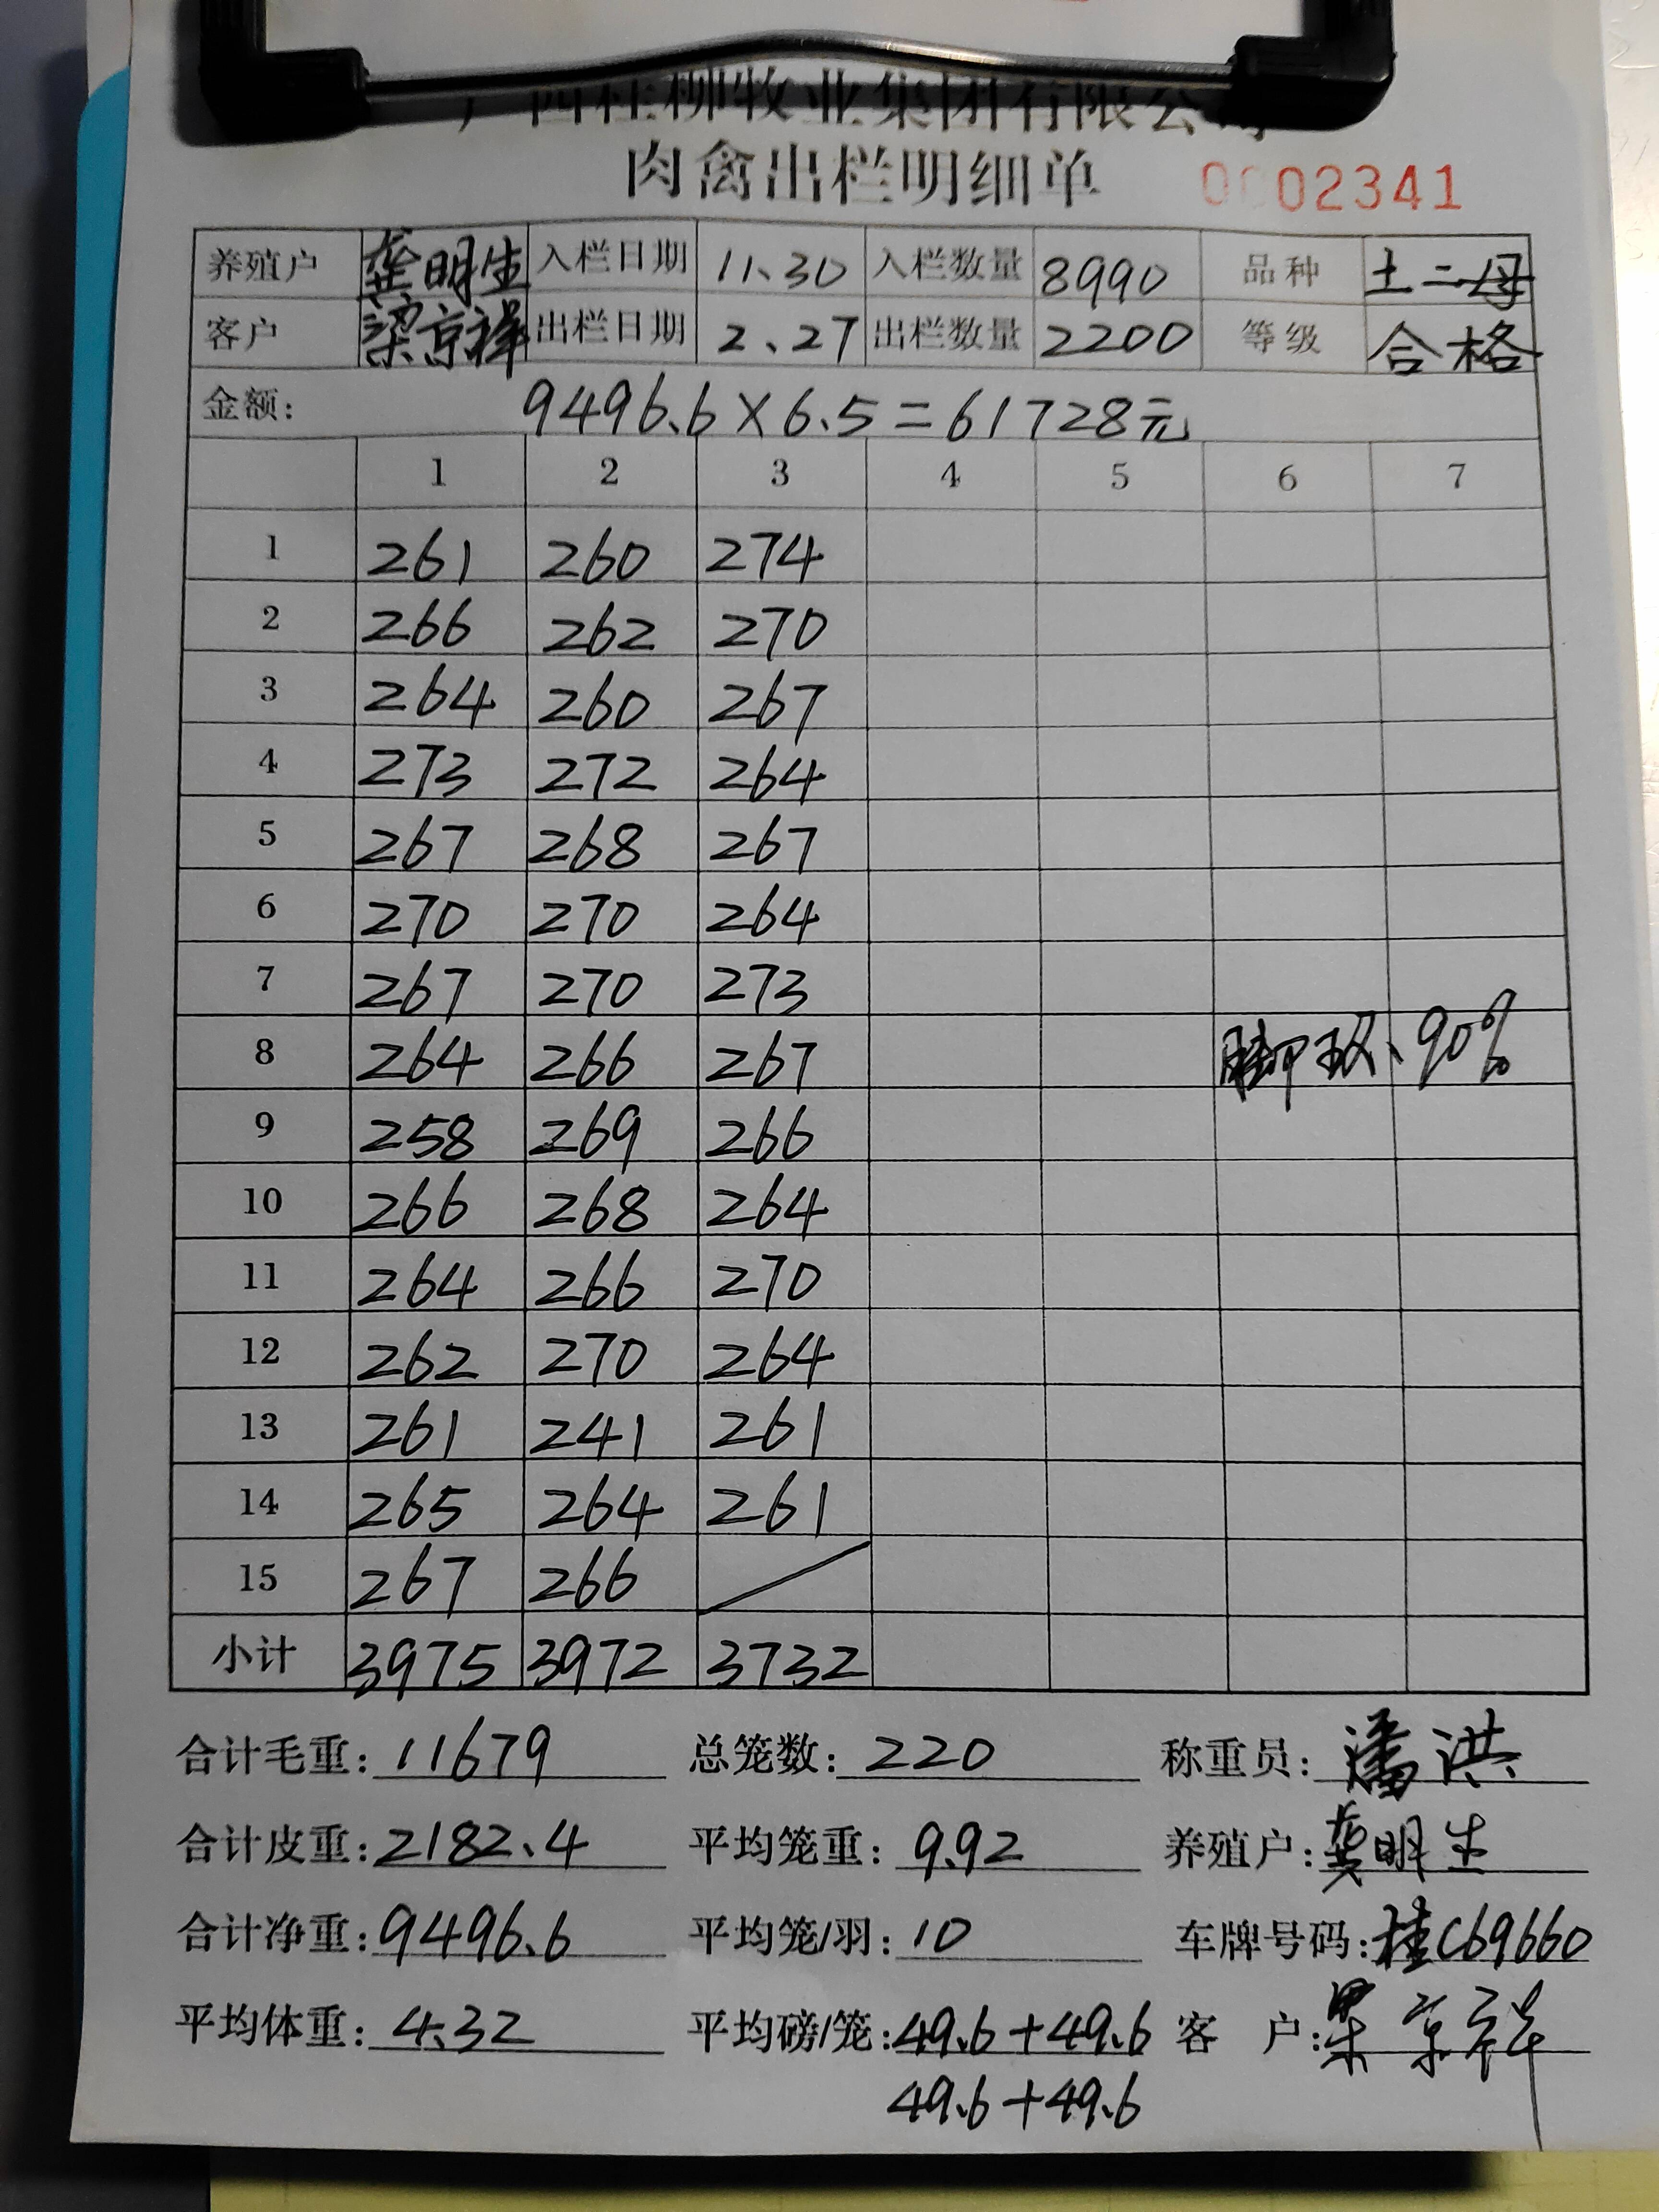 广西桂柳牧业集团有限公司
肉禽出栏明细单 0002341
养殖户 龚明生 入栏日期 11、30 入栏数量 8990 品种 土二母
客户 梁京祥 出栏日期 2、27 出栏数量 2200 等级 合格
金额: 9496.6×6.5=61728元
1 2 3 4 5 6 7
1 261 260 274
2 266 262 270
3 264 260 267
4 273 272 264
5 267 268 267
6 270 270 264
7 267 270 273
8 264 266 267 90%
9 258 269 266
10 266 268 264
11 264 266 270
12 262 270 264
13 261 241 261
14 265 264 261
15 267 266
小计 3975 3972 3732
合计毛重: 11679 总笼数: 220 称重员: 潘洪
合计皮重: 2182.4 平均笼重: 9.92 养殖户: 龚明生
合计净重: 9496.6 平均笼/羽: 10 车牌号码: 桂C69660
平均体重: 4.32 平均磅/笼: 49.6+49.6 客 户: 梁京祥
49.6+49.6